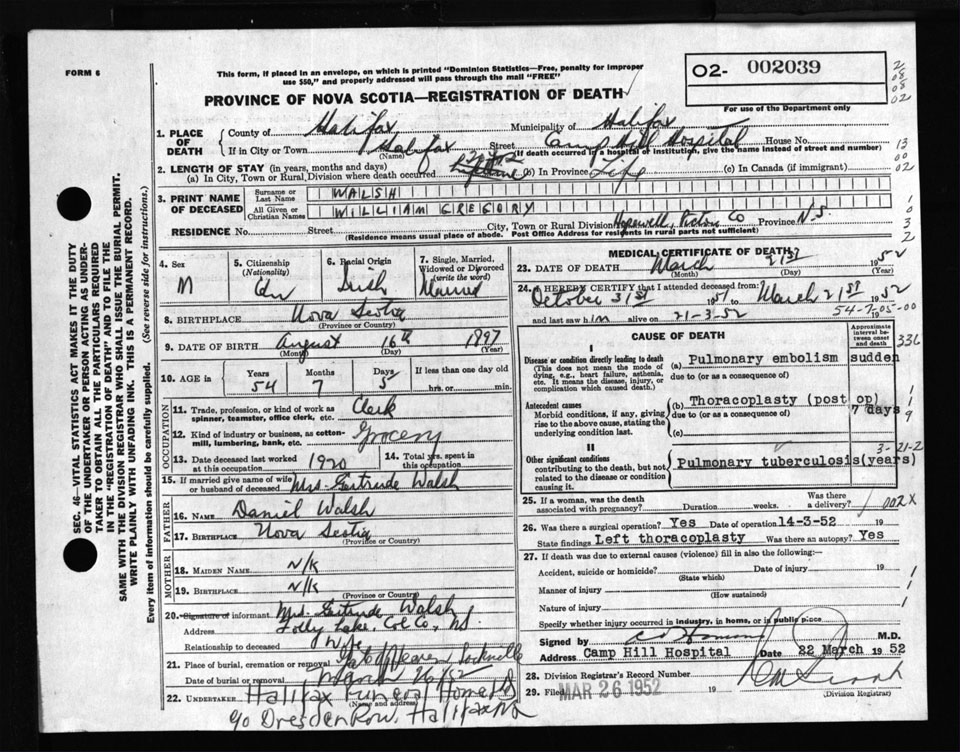 FORM 6
This form, if placed in an envelope, on which is printed "Dominion Statistics—Free, penalty for improper
use $50," and properly addressed will pass through the mail "FREE"
PROVINCE OF NOVA SCOTIA—REGISTRATION OF DEATH
O2- 002039
For use of the Department only
2 08 08 02
13 00 02
1. PLACE OF DEATH
County of Halifax Municipality of Halifax
If in City or Town Halifax Street Camp Hill Hospital House No.
(Name) (If death occurred in a hospital or institution, give the name instead of street and number)
2. LENGTH OF STAY (in years, months and days)
(a) In City, Town or Rural Division where death occurred (b) In Province Life (c) In Canada (if immigrant)
3. PRINT NAME OF DECEASED
Surname or Last Name WALSH
All Given or Christian Names WILLIAM GREGORY
RESIDENCE No. Street City, Town or Rural Division Hopewell, Pictou Co Province N.S.
(Residence means usual place of abode. Post Office Address for residents in rural parts not sufficient)
4. Sex M
5. Citizenship (Nationality) Cdn
6. Racial Origin Irish
7. Single, Married, Widowed or Divorced (write the word) Married
8. BIRTHPLACE Nova Scotia
(Province or Country)
9. DATE OF BIRTH August 16th 1897
(Month) (Day) (Year)
10. AGE in Years 54 Months 7 Days 5 If less than one day old hrs. or min.
OCCUPATION
11. Trade, profession, or kind of work as spinner, teamster, office clerk, etc. Clerk
12. Kind of industry or business, as cotton-mill, lumbering, bank, etc. Grocery
13. Date deceased last worked at this occupation 1920
14. Total yrs. spent in this occupation
15. If married give name of wife or husband of deceased Mrs. Gertrude Walsh
FATHER
16. NAME Daniel Walsh
17. BIRTHPLACE Nova Scotia
(Province or Country)
MOTHER
18. MAIDEN NAME N/K
19. BIRTHPLACE N/K
(Province or Country)
20. Signature of informant Mrs. Gertrude Walsh
Address Folly Lake, Col Co, N.S.
Relationship to deceased Wife
21. Place of burial, cremation or removal
Date of burial or removal March 26/52
22. UNDERTAKER Halifax Funeral Home
(Name and address)
90 Dresden Row, Halifax NS
MEDICAL CERTIFICATE OF DEATH
23. DATE OF DEATH March 21st 1952
(Month) (Day) (Year)
24. I HEREBY CERTIFY that I attended deceased from:
October 31st 1951 to March 21st 1952
and last saw him alive on 21-3-52 19
54-7-05-00
CAUSE OF DEATH
Approximate interval between onset and death
I
Disease or condition directly leading to death (a) Pulmonary embolism sudden
(This does not mean the mode of dying, e.g., heart failure, asthenia, etc. It means the disease, injury, or complication which caused death.)
due to (or as a consequence of)
Antecedent causes (b) Thoracoplasty (post op) 7 days
Morbid conditions, if any, giving rise to the above cause, stating the underlying condition last.
due to (or as a consequence of)
(c)
II
Other significant conditions contributing to the death, but not related to the disease or condition causing it.
Pulmonary tuberculosis (years)
25. If a woman, was the death associated with pregnancy? Duration weeks. Was there a delivery?
002X
26. Was there surgical operation? Yes Date of operation 14-3-52 19
State findings Left thoracoplasty Was there an autopsy? Yes
27. If death was due to external causes (violence) fill in also the following:—
Accident, suicide or homicide? Date of injury 19
(State which)
Manner of injury
(How sustained)
Nature of injury
Specify whether injury occurred in industry, in home, or in public place
Signed by M.D.
Address Camp Hill Hospital Date 22 March 1952
28. Division Registrar's Record Number
29. Filed MAR 26 1952 19
(Division Registrar)
SEC. 46—VITAL STATISTICS MAKES IT THE DUTY
OF THE UNDERTAKER OR PERSON ACTING AS UNDERTAKER
TO OBTAIN ALL THE PARTICULARS REQUIRED
IN THE "REGISTRATION OF DEATH" AND TO FILE THE
SAME WITH THE DIVISION REGISTRAR WHO SHALL ISSUE THE BURIAL PERMIT.
WRITE PLAINLY WITH UNFADING INK. THIS IS A PERMANENT RECORD.
Every item of information should be carefully supplied. (See reverse side for instructions.)